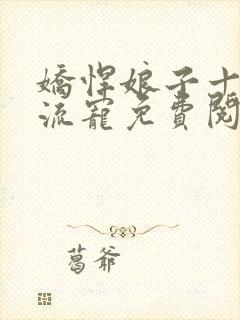 嬌悍娘子十
流寵免費閱
葛爺